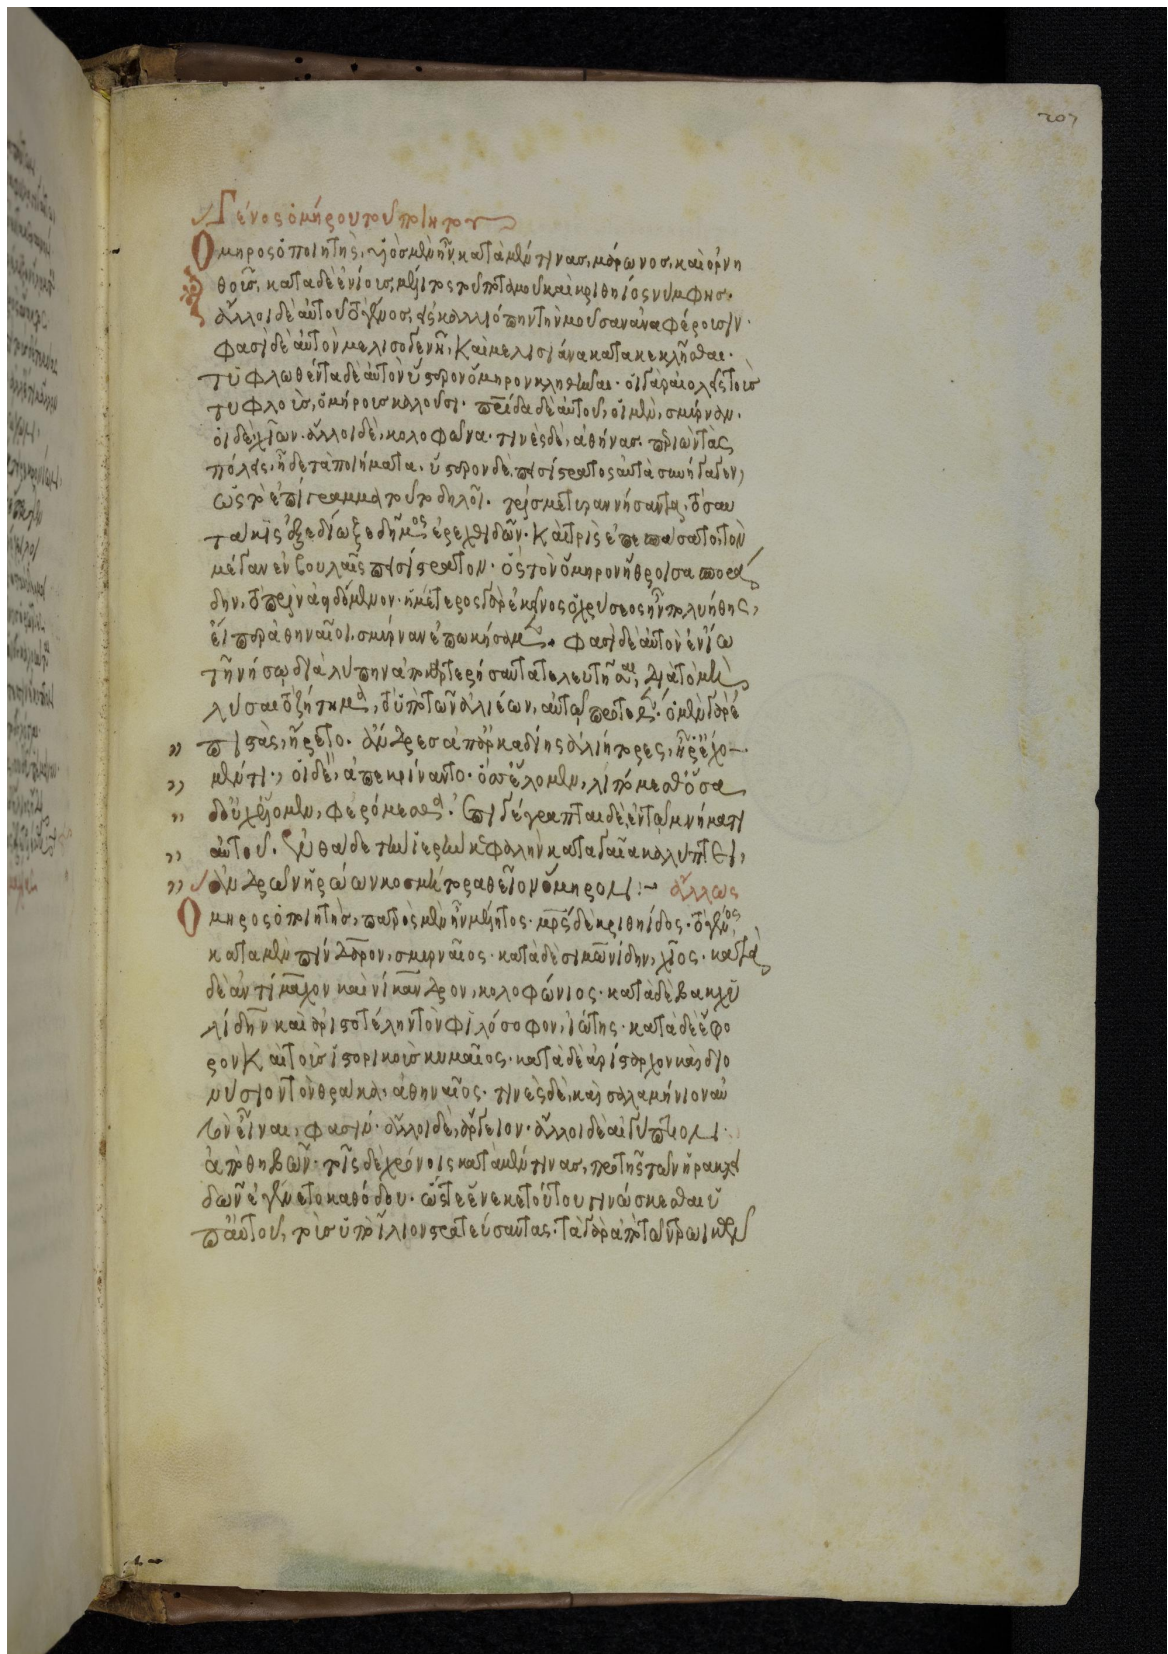 207
Γένος ὁμήρου τοῦ ποιητοῦ
Ὅμηρος ὁ ποιητὴς, υἱὸς μὲν ἦν κατὰ μέν τινας, μαίωνος, καὶ ὀρνη
θοῖς, κατὰ δὲ ἐνίοις, μέλητος τοῦ ποταμοῦ καὶ κριθηίος νύμφης.
ἄλλοι δὲ αὐτοῦ τὸ γένος, εἰς καλλιόπην τὴν μοῦσαν ἀναφέρουσιν.
φασὶ δὲ αὐτὸν μελισ καὶ μελισιάνακτα κεκλῆσθαι.
τυφλωθέντα δὲ αὐτὸν ὕστερον ὅμηρον κληθῆναι. οἱ γὰρ αἰολεῖς τοὺς
τυφλοὺς, ὁμήρους καλοῦσι. πατρίδα δὲ αὐτοῦ, οἱ μὲν, σμύρναν.
οἱ δὲ χῖον. ἄλλοι δὲ, κολοφῶνα. τινὲς δὲ, ἀθήνας. περιιὼν τὰς
πόλεις, ᾖδε τὰ ποιήματα. ὕστερον δὲ, πεισίστρατος αὐτὰ συνήγαγεν,
ὡς τὸ ἐπίγραμμα τοῦτο δηλοῖ. τρίς με τυραννήσαντα, τοσαυ
τάκις ἐξεδίωξε δῆμος ἐρεχθειδῶν. καὶ τρὶς ἐπεσπάσατο, τὸν
μέγαν ἐν βουλαῖς πεισίστρατον. ὃς τὸν ὅμηρον ἤθροισα σπορά
δην, τὸ πρὶν ἀειδόμενον. ἡμέτερος γὰρ ἐκεῖνος ὁ χρύσεος ἦν πολιήτης,
εἴπερ ἀθηναῖοι, σμύρναν ἐπωκήσαμεν. φασὶ δὲ αὐτὸν ἐν ἴῳ
τῇ νήσῳ διὰ λύπην ἀποκαρτερήσαντα τελευτῆσαι, διὰ τὸ μὴ
λῦσαι τὸ ζήτημα, τὸ ὑπὸ τῶν ἁλιέων, αὐτῷ προτεθέν. ὁ μὲν γὰρ ἐ
πιστὰς, ἤρετο. ἄνδρες ἀπ' ἀρκαδίης ἁλιήτορες, ἦ ῥ' ἔχο
μέν τι, οἱ δὲ, ἀπεκρίναντο. ὅσ' ἕλομεν, λιπόμεσθ' ὅσα
δ' οὐχ ἕλομεν, φερόμεσθα. ἐπιγέγραπται δὲ ἐν τῷ μνήματι
αὐτοῦ. ἐνθάδε τὴν ἱερὴν κεφαλὴν κατὰ γαῖα καλύπτει,
ἀνδρῶν ἡρώων κοσμήτορα θεῖον ὅμηρον: ἄλλως
Ὅμηρος ὁ ποιητὴς, πατρὸς μὲν ἦν μέλητος. μητρὸς δὲ κριθηίδος. τὸ γένος
κατὰ μὲν πίνδαρον, σμυρναῖος. κατὰ δὲ σιμωνίδην, χῖος. κατὰ
δὲ ἀντίμαχον καὶ νίκανδρον, κολοφώνιος. κατὰ δὲ βακχυ
λίδην καὶ ἀριστοτέλην τὸν φιλόσοφον, ἰώτης. κατὰ δὲ ἔφο
ρον καὶ τοὺς ἱστορικοὺς κυμαῖος. κατὰ δὲ ἀρίσταρχον καὶ διο
νύσιον τὸν θρᾷκα, ἀθηναῖος. τινὲς δὲ, καὶ σαλαμήνιον αὐ
τὸν εἶναι, φασιν. ἄλλοι δὲ, ἀργεῖον. ἄλλοι δὲ αἰγύπτιον
ἀπὸ θηβῶν. τοῖς δὲ χρόνοις κατὰ μέν τινας, πρὸ τῆς τῶν ἡρακλει
δῶν ἐγένετο καθόδου. ὥστε ἕνεκε τούτου γινώσκεσθαι ὑ
π' αὐτοῦ, τοὺς ὑπὸ ἴλιον στρατεύσαντας. τὰ γὰρ ἀπὸ τῶν τρωικῶν